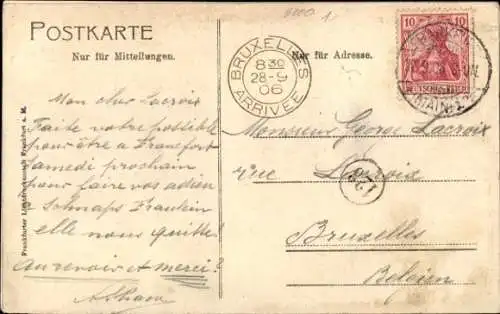 POSTKARTE
Nur für Mitteilungen.
Nur für Adresse.
BRUXELLES
8 30
28-9
06
ARRIVÉE
10 10
DEUTSCHES REICH
(MAIN)
Mon cher Lacroix
Faite votre possible
pour être a Francfort
Samedi prochain
pour faire vos adieu
a Schnaps Fraulein
elle nous quitte!
Au revoir et merci!
Monsieur George Lacroix
rue Lacroix
126
Bruxelles
Belgien
Frankfurter Frankfurt a. M.